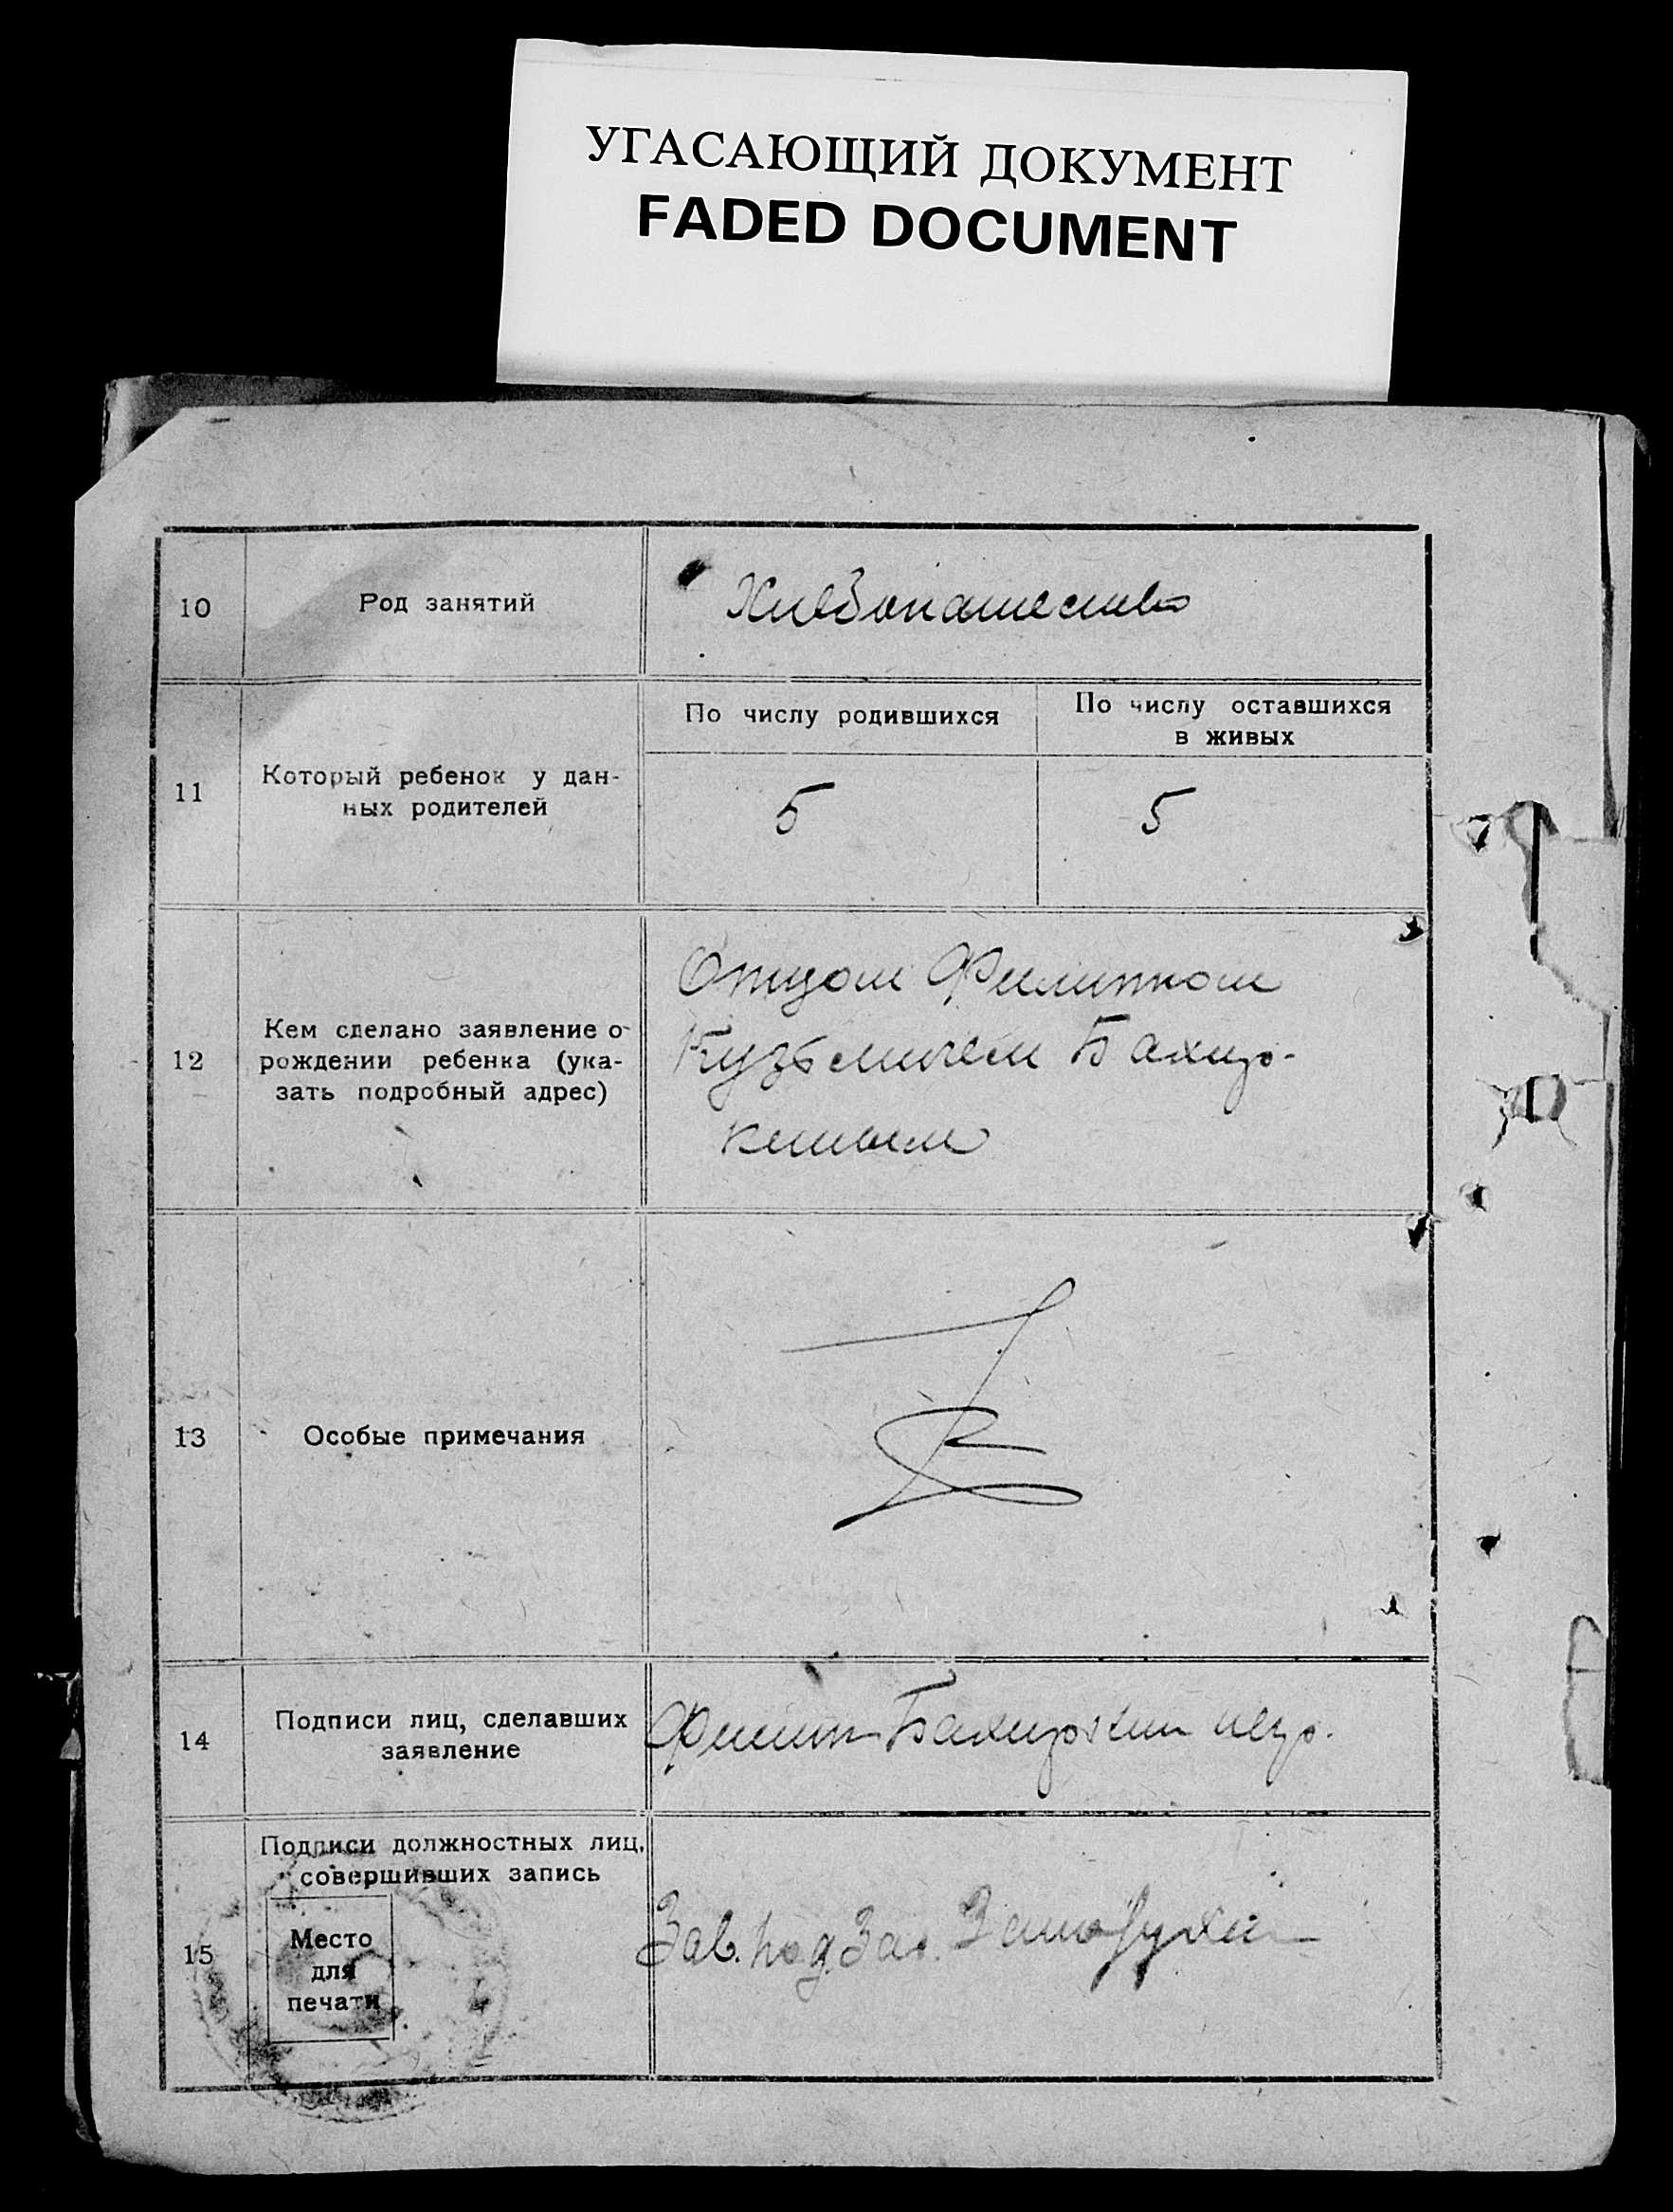 УГАСАЮЩИЙ ДОКУМЕНТ
FADED DOCUMENT
10
Род занятий
Хлебопашество
11
Который ребенок у дан-
ных родителей
По числу родившихся
По числу оставшихся
в живых
5
5
12
Кем сделано заявление о
рождении ребенка (ука-
зать подробный адрес)
Отцом Филиппом
Кузьмичем
13
Особые примечания
14
Подписи лиц, сделавших
заявление
Филипп
15
Подписи должностных лиц,
совершивших запись
Место
для
печати
Зав. под